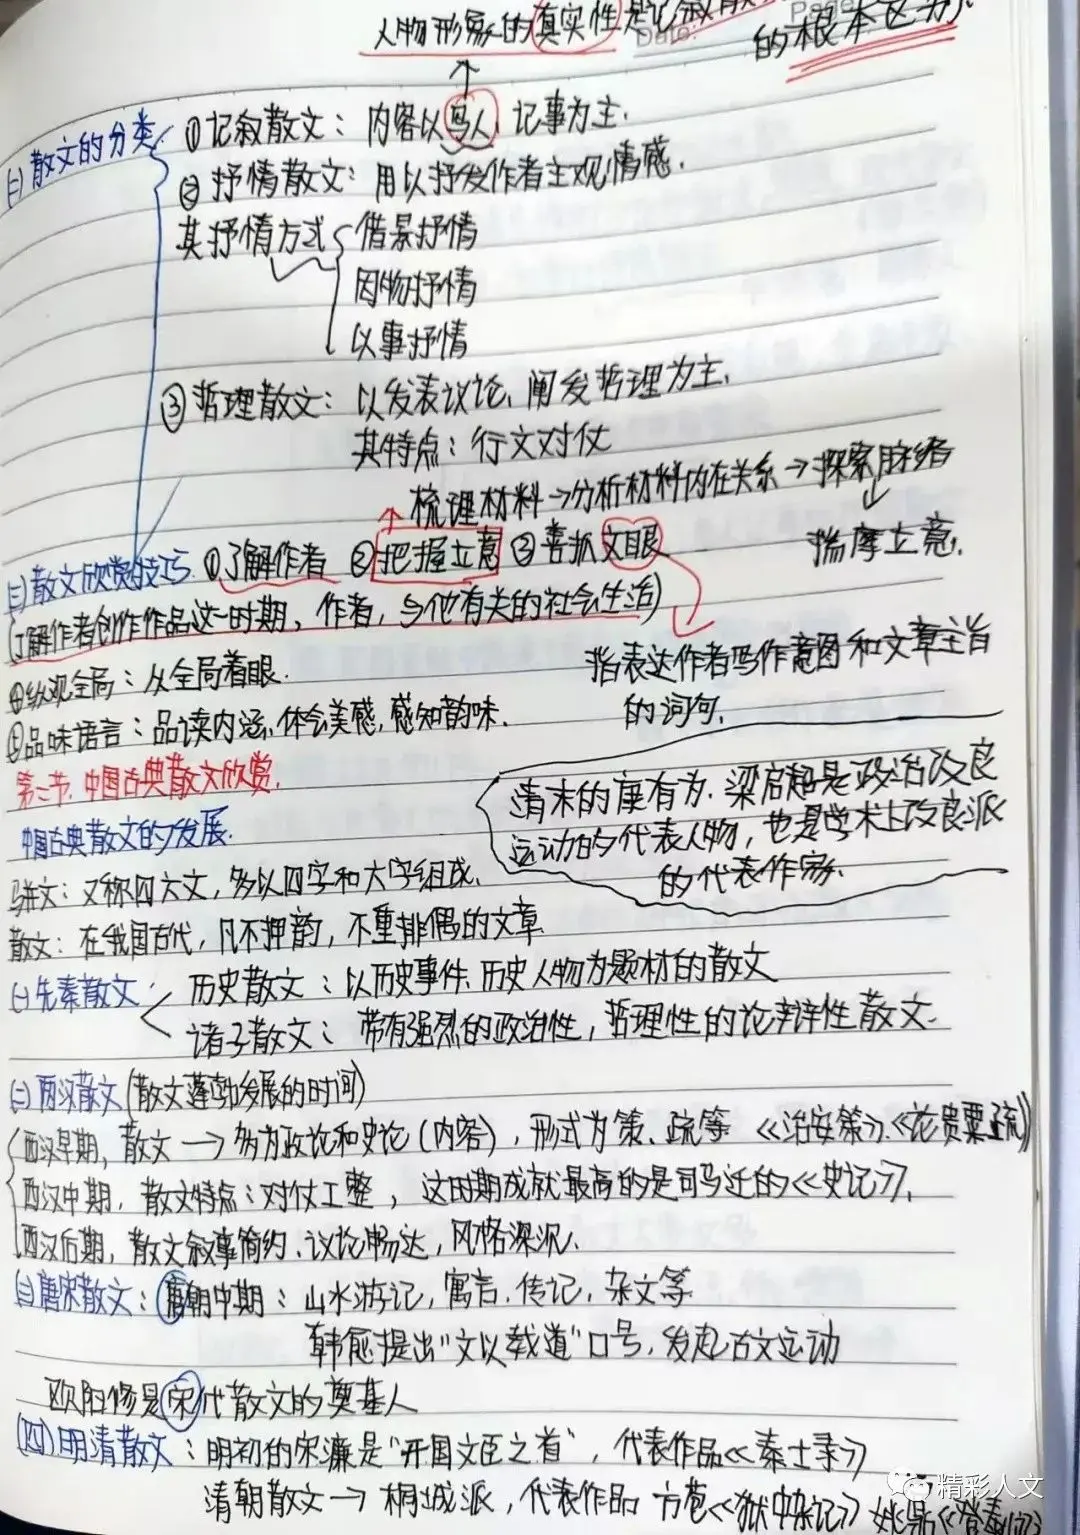 人物形象的真实性是记叙散
的根本区分.
(二)散文的分类
①记叙散文：内容以写人、记事为主.
②抒情散文：用以抒发作者主观情感.
其抒情方式 借景抒情
因物抒情
以事抒情
③哲理散文：以发表议论、阐发哲理为主.
其特点：行文对仗
梳理材料→分析材料内在关系→探索脉络
揣摩立意.
(三)散文欣赏技巧 ①了解作者 ②把握立意 ③善抓文眼
(了解作者创作作品这一时期，作者，与他有关的社会生活)
指表达作者写作意图和文章主旨
的词句.
④纵观全局：从全局着眼.
⑤品味语言：品读内涵、体会美感，感知韵味.
第二节.中国古典散文欣赏.
清末的康有为.梁启超是政治改良
运动的代表人物，也是学术上改良派
的代表作家.
中国古典散文的发展.
骈文：又称四六文，多以四字和六字组成.
散文：在我国古代，凡不押韵，不重排偶的文章
(一)先秦散文 历史散文：以历史事件、历史人物为题材的散文
诸子散文：带有强烈的政治性，哲理性的论辩性散文.
(二)两汉散文(散文蓬勃发展的时间)
西汉早期，散文→多为政论和史论(内容)，形式为策、疏等《治安策》《论贵粟疏》
西汉中期，散文特点：对仗工整，这时期成就最高的是司马迁的《史记》.
西汉后期，散文叙事简约、议论畅达，风格深沉.
(三)唐宋散文：唐朝中期：山水游记，寓言.传记，杂文等
韩愈提出"文以载道"口号，发起古文运动
欧阳修是宋代散文的奠基人
(四)明清散文：明初的宋濂是"开国文臣之首"，代表作品《秦士录》
清朝散文→桐城派，代表作品 方苞《狱中杂记》姚鼐《登泰山》
精彩人文